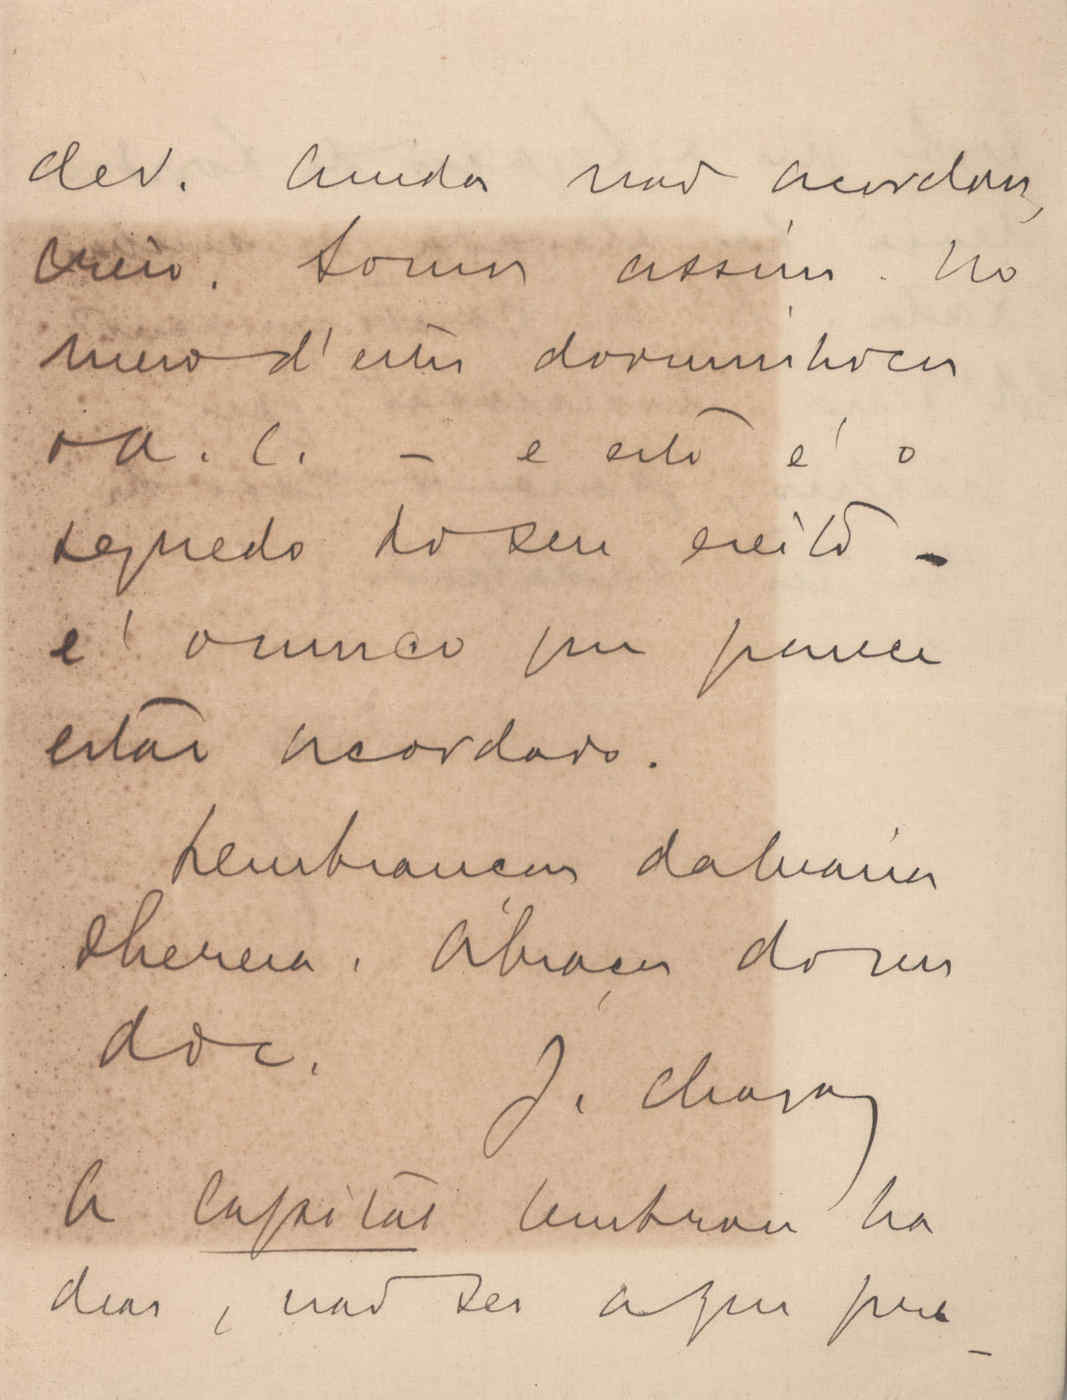 der. Ainda não acordou,
creio. Somos assim. No
meio d'estes dorminhocos
o A. C. – e este é o
segredo do seu exito –
é o unico que parece
estar acordado.
Lembranças da Maria
Thereza. Abraços do seu
do c.
J. Chagas
A Capital lembrou ha
dias, não sei a que pro-